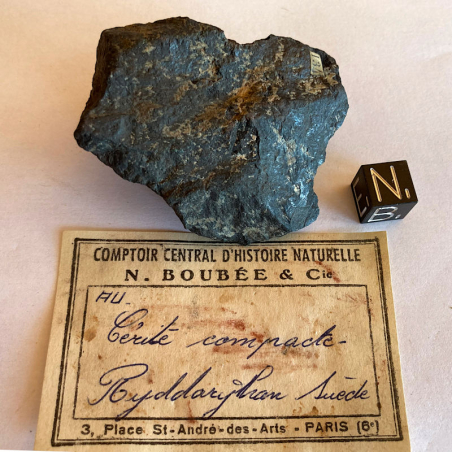 N.
B.
COMPTOIR CENTRAL D'HISTOIRE NATURELLE
N. BOUBÉE & Cie
AU.
Cérite compacte-
Ryddarythan Suède
3, Place St-André-des-Arts - PARIS (6e)